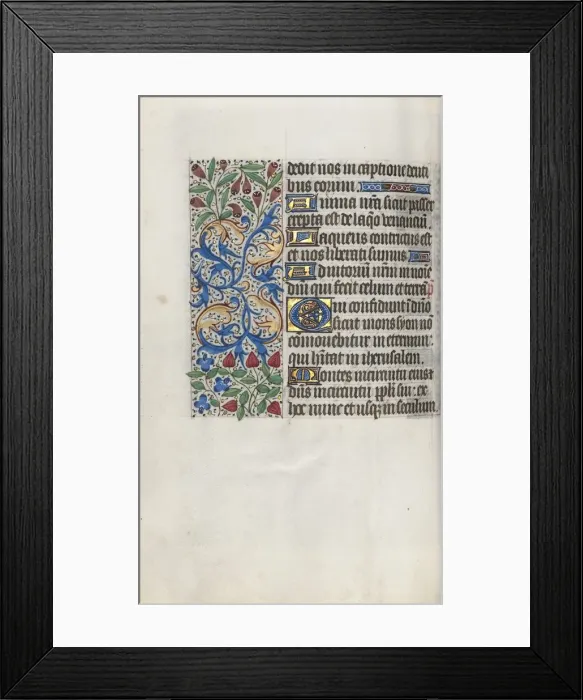 dedit nos in captione denti
bus eorum.
Anima nr̄a sicut passer
erepta est de laq̄o venantiū.
Laqueus contritus est
et nos liberati sumus.
Adiutoriū nr̄m in noīe
dn̄i qui fecit celum et terrā. p̄
Qui confidunt ī dn̄o
sicut mons syon nō
cōmovebitur in eternum:
qui hītat in iherusalem.
Montes in circuitu eius et
dn̄s in circuitu ppli sui: ex
hoc nunc et usq̄ in seculum.